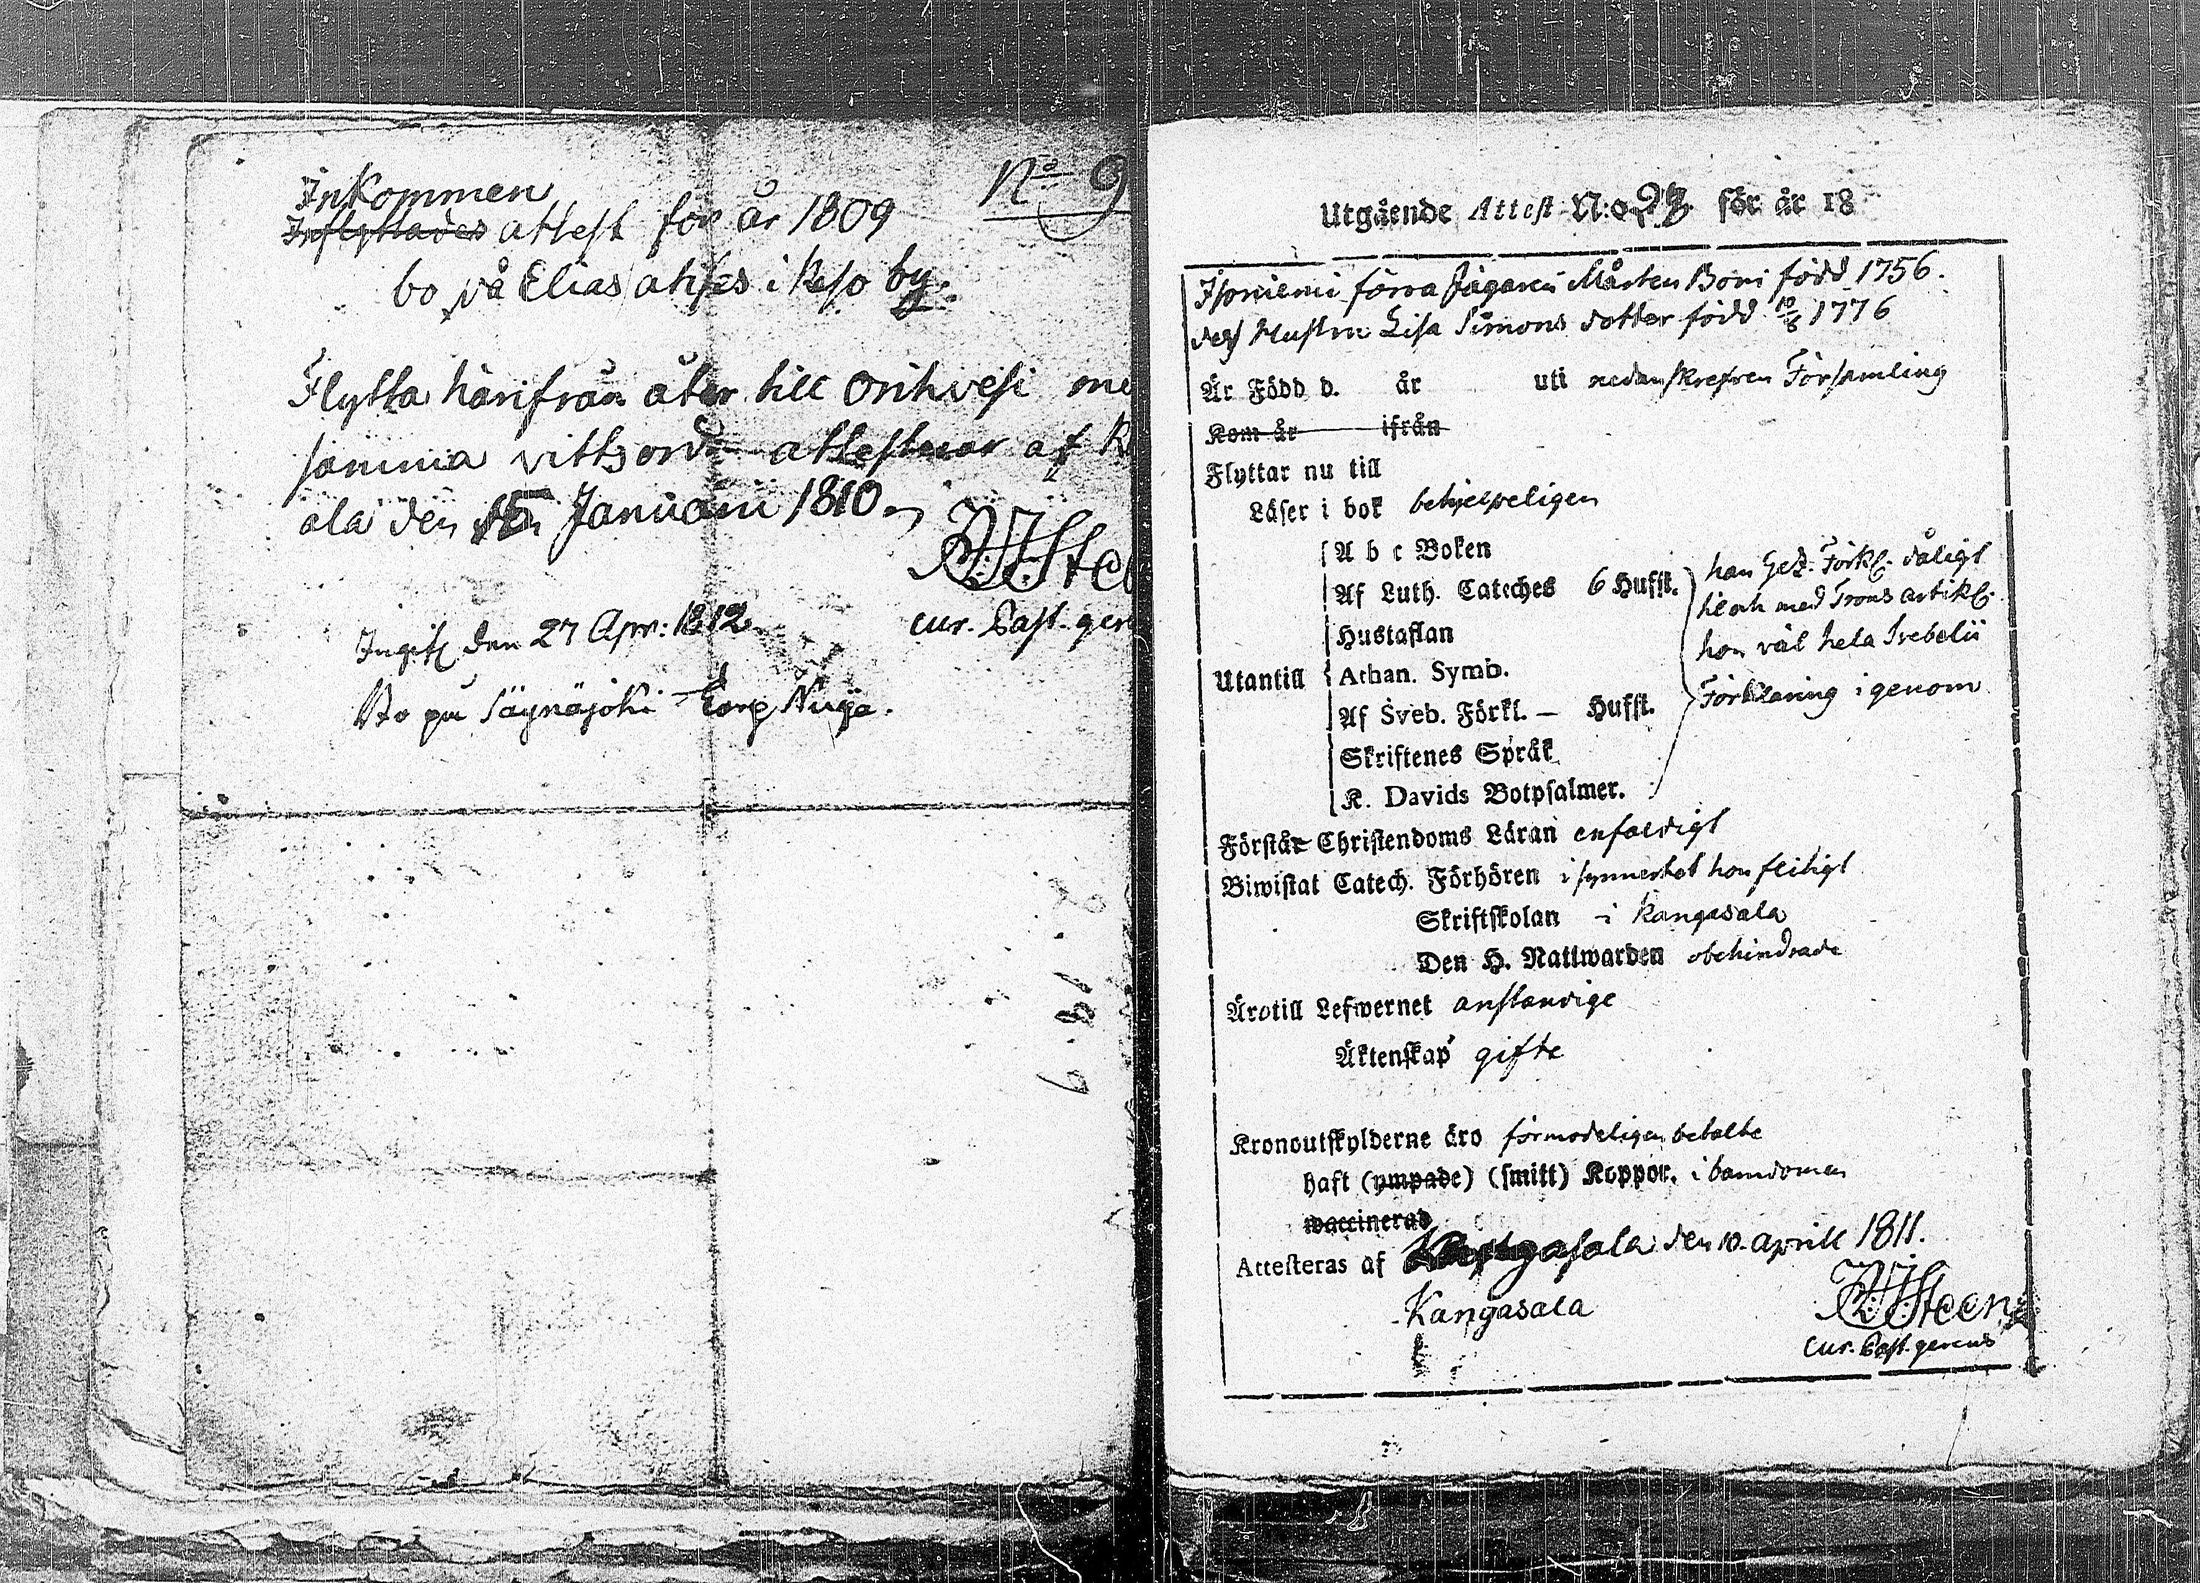 No 9
Inkommen
Inflyttades attest för år 1809
bo på Elias ahfes i Reso by.
Flytta härifrån åter till Orihvesi me
samma vittsord attesterar af K
ala den 15 Januarii 1810
cur. Past. ger
Ingift den 27 Apr: 1812
Bo på Säynäjoki
Utgående Attest N:o 23 för år 18
Isoniemi förra Jägaren Mårten Boni född 1756.
dess Hustru Lisa Simons dotter född 10/8 1776
Är Född d. år uti nedanskrefven Församling
Kom år ifrån
Flyttar nu till
Läser i bok behjelpeligen
A b c Boken
Af Luth. Cateches 6 Hufst.
Hustaflan
Utantill
Athan. Symb.
Af Sveb. Förkl. — Hufst.
Skriftenes Språk
K. Davids Botpsalmer.
han Förkl. dåligt
med Trons artikl.
hon väl hela Svebelii
Förklaring igenom
Förstår Christendoms Läran enfaldigt
Biwistat Catech. Förhören i synnerhet hon flitigt
Skriftskolan i Kangasala
Den H. Nattwarden obehindrade
Äro till Lefwernet anständige
Äktenskap gifte
Kronoutskylderne äro förmodeligen betalte
haft (ympade) (smitt) Koppor. i barndomen
waccinerad
Attesteras af Kangasala den 10. aprill 1811.
Kangasala
Steen
cur. Past. gerens